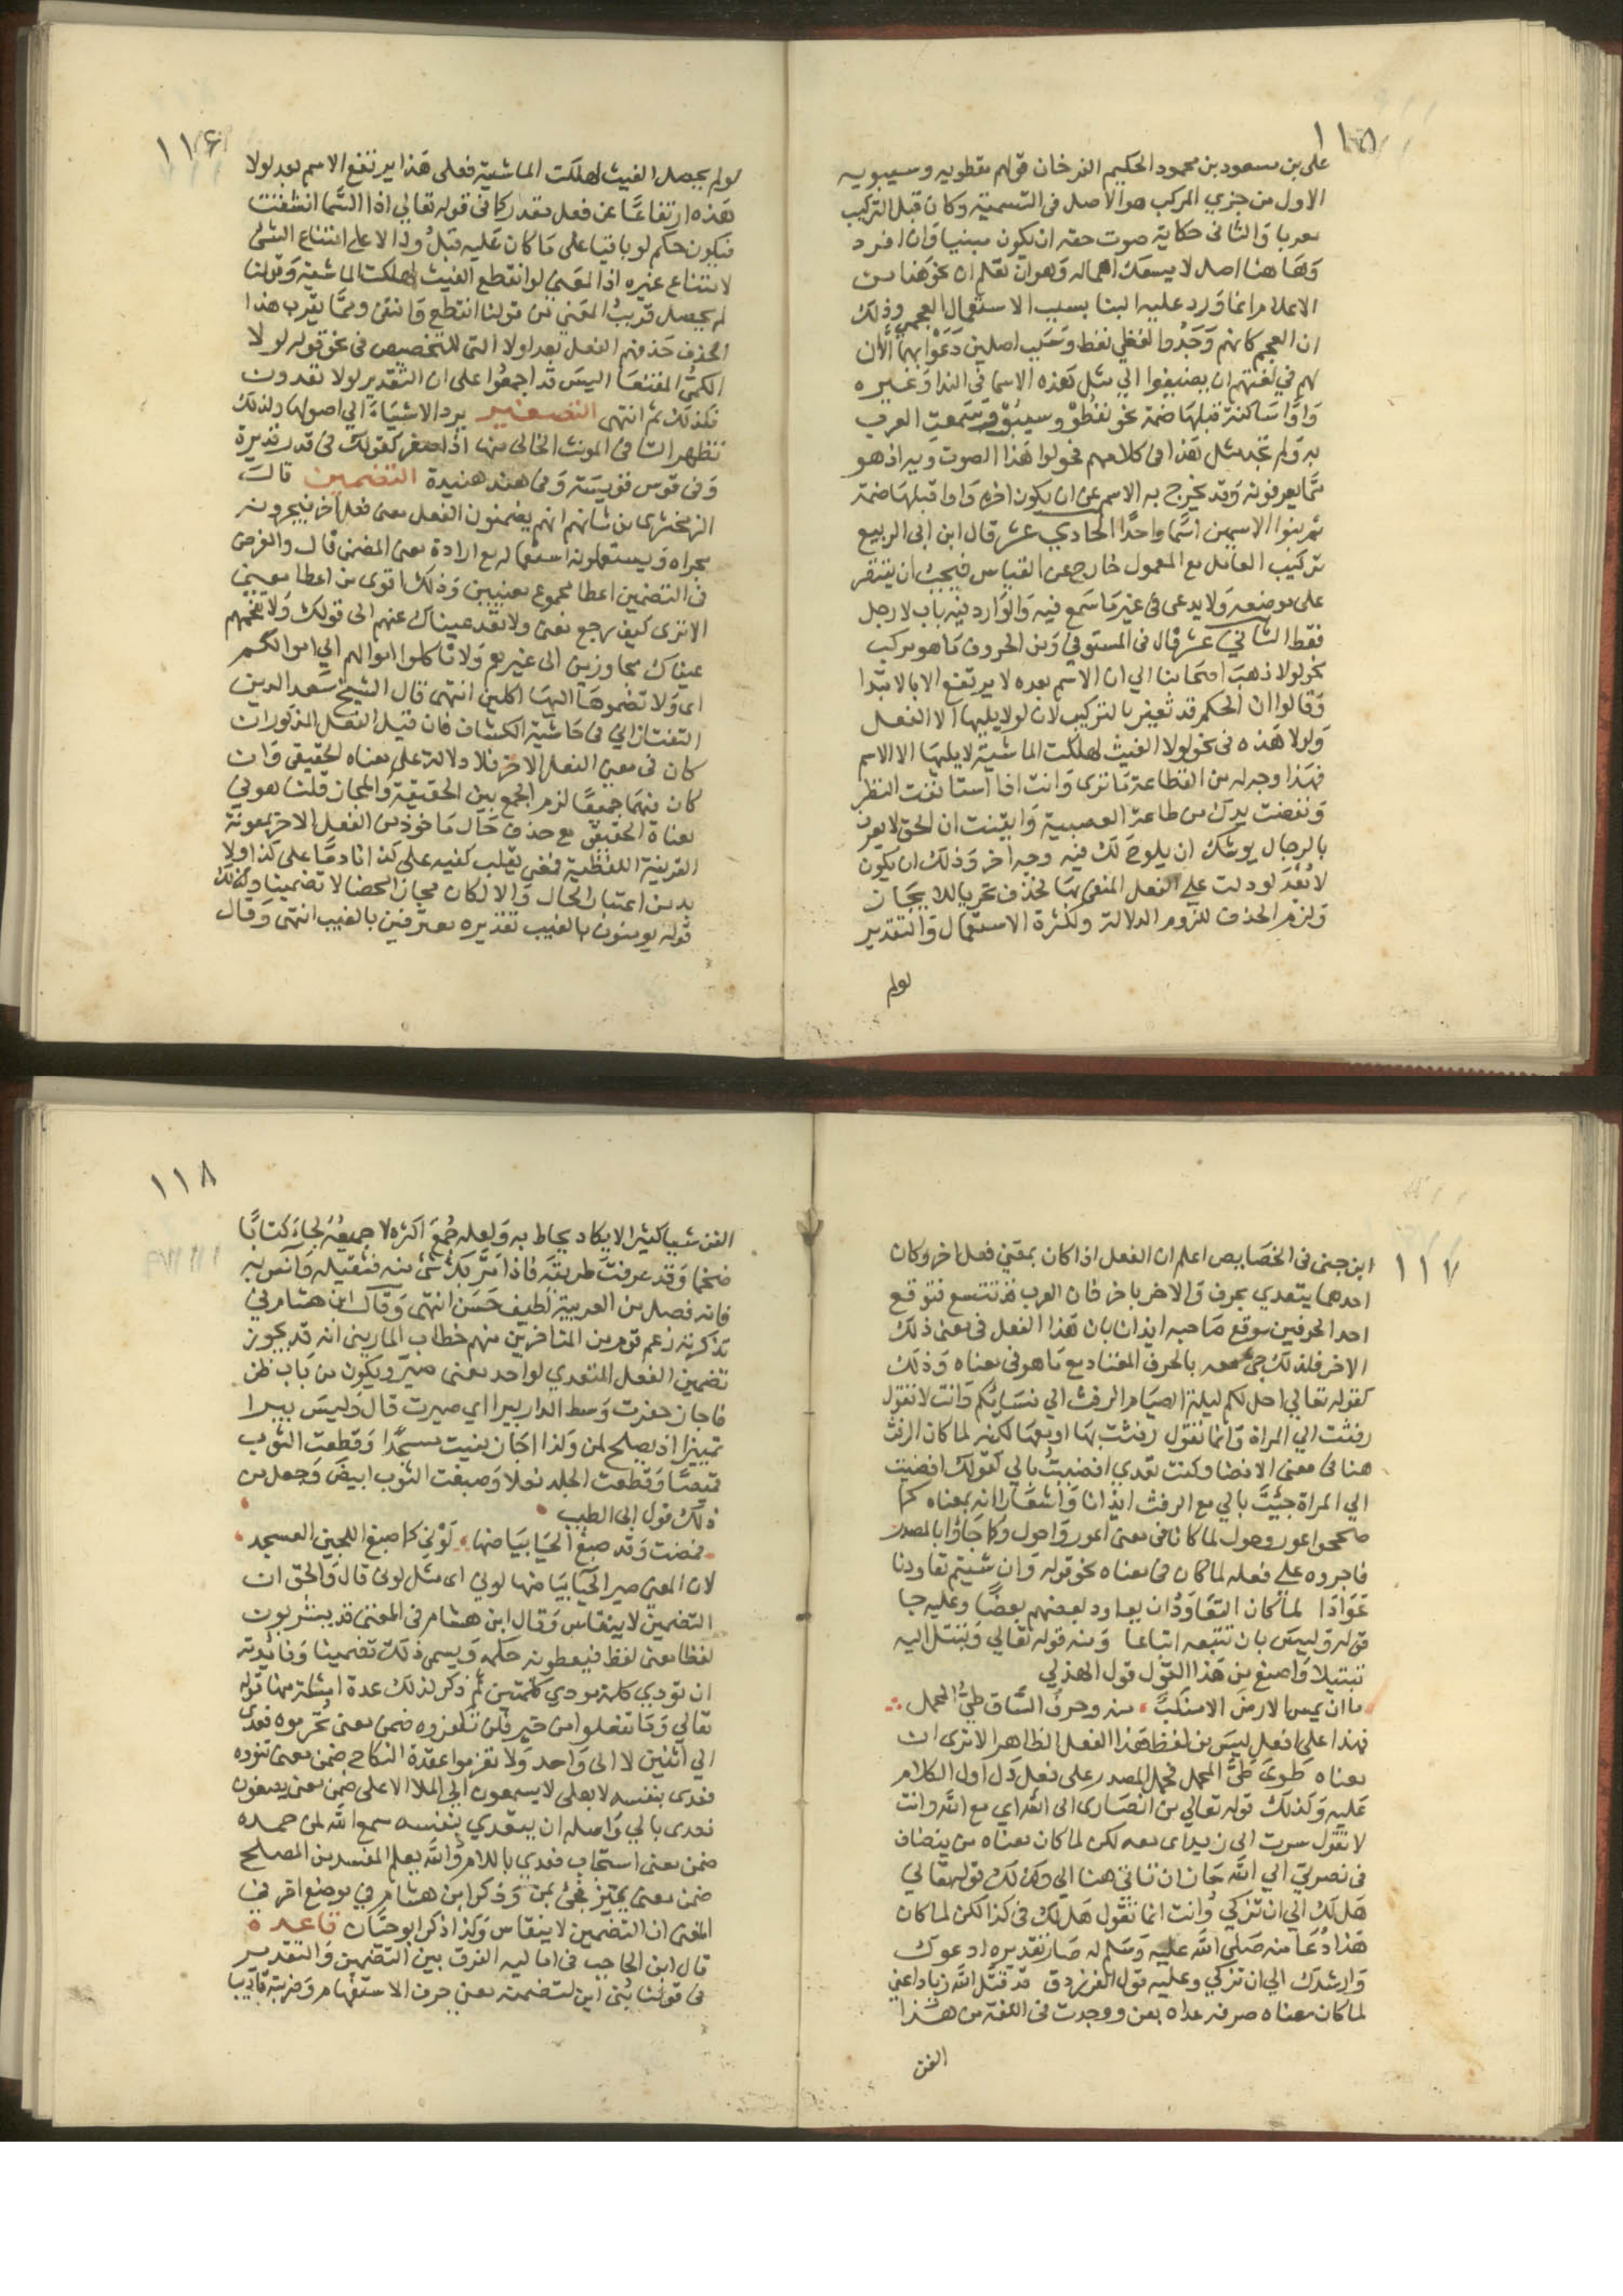 ١١٥
على بن مسعود بن محمود الحكيم الفرخان قولهم نفطويه وسيبويه
الاول من جزي المركب هو الاصل فى التسمية وكان قبل التركيب
معربا والثانى حكاية صوت حقه ان يكون مبنيا وان افرد
وهاهنا اصل لا يسعك اهماله وهو ان تعلم ان نحو هذا من
الاعلام انما ورد عليه البنا بسبب الاستعمال العجمي وذلك
ان العجم كانهم وجدوا لفظي نفط وسيب اصلين دعوا بهما لان
لهم في لغتهم ان يضيفوا الي مثل هذه الاسما فى الندا وغيره
واوا ساكنة قبلها ضمة نحو نفطو وسيبو وسمعت العرب
به ولم تجد مثل هذا فى كلامهم فحولوا هذا الصوت ويه اذ هو
مما يعرفونه وقد يخرج به الاسم عن ان يكون اخره واوا قبلها ضمة
ثم بنوا الاسمين اسما واحدا الحادي عشر قال ابن ابى الربيع
تركيب العامل مع المعمول خارج عن القياس فيجب ان يقتصر
على موضعه ولا يدعى فى غير ما سمع فيه والوارد فيه باب لا رجل
فقط الثاني عشر قال فى المستوفي ومن الحروف ما هو مركب
نحو لولا ذهب اصحابنا الي ان الاسم بعده لا يرتفع الا بالابتدا
وقالوا ان الحكم قد تغير بالتركيب لان لو لا يليها الا الفعل
ولولا هذه فى نحو لولا الغيث لهلكت الماشية لا يليها الا الاسم
فهذا وجه له من الفظاعة ما ترى وانت اذا استانفت النظر
ونفضت يدك من طاعة العصبية وايقنت ان الحق لا يعرف
بالرجال يوشك ان يلوح لك فيه وجه اخر وذلك ان يكون
لا بعد لو دلت على الفعل المنفى بها فحذف تحريا للايجاز
ولزم الحذف للزوم الدلالة ولكثرة الاستعمال والتقدير
لولم
١١٦
لولم يحصل الغيث لهلكت الماشية فعلى هذا يرتفع الاسم بعد لولا
هذه ارتفاعا عن فعل مقدر كما فى قوله تعالي اذا السما انشقت
فيكون حكم لو باقيا على ما كان عليه قبل ولا دالا على امتناع الشى
لامتناع غيره اذ المعنى لو انقطع الغيث لهلكت الماشية وقولنا
لم يحصل قريب المعني من قولنا انقطع وانتفى ومما يقرب هذا
الحذف حذفهم الفعل بعد لولا التى للتحضيض فى نحو قوله لولا
الكمى المقنعا اليس قد اجمعوا على ان التقدير لولا تعدون
فكذلك ثم انتهى التصغير يرد الاشياء الي اصولها ولذلك
تظهر التا فى المونث الخالى منها اذا صغر كقولك فى قدر قديرة
وفى قوس قويسة وفى هند هنيدة التضمين قال
الزمخشرى من شانهم انهم يضمنون الفعل معنى فعل آخر فيجرونه
مجراه ويستعملونه استعماله مع ارادة معنى المضمن قال والغرض
فى التضمين اعطا مجموع معنيين وذلك اقوى من اعطا معنى
الا ترى كيف رجع معنى ولا تعد عيناك عنهم الى قولك ولا تقتحمهم
عيناك مجاوزين الى غيرهم ولا تاكلوا اموالهم الي اموالكم
اى ولا تضموها اليها اكلين انتهى قال الشيخ سعد الدين
التفتازاني فى حاشية الكشاف فان قيل الفعل المذكور ان
كان فى معنى الفعل الاخر فلا دلالة على معناه الحقيقى وان
كان فيهما جميعا لزم الجمع بين الحقيقة والمجاز قلنا هو في
معناه الحقيقى مع حذف حال ماخوذ من الفعل الاخر بمعونة
القرينة اللفظية فمعنى يقلب كفيه على كذا نادما على كذا ولا
بد من اعتبار الحال والا لكان مجازا محضا لا تضمينا وكذلك
قوله يومنون بالغيب تقديره معترفين بالغيب انتهى وقال
١١٧
ابن جنى فى الخصايص اعلم ان الفعل اذا كان بمعنى فعل اخر وكان
احدهما يتعدي بحرف والاخر باخر فان العرب قد تتسع فتوقع
احد الحرفين موقع صاحبه ايذانا بان هذا الفعل فى معنى ذلك
الاخر فلذلك جئ معه بالحرف المعتاد مع ما هو فى معناه وذلك
كقوله تعالي احل لكم ليلة الصيام الرفث الي نسائكم وانت لا تقول
رفثت الي المراة وانما تقول رفثت بها او معها لكنه لما كان الرفث
هنا فى معنى الافضا وكنت تعدي افضيت بالي كقولك افضيت
الي المراة جئت بالي مع الرفث ايذانا واشعارا انه بمعناه كما
صححوا عور وحول لما كانا فى معنى اعور واحول وكما جاؤا بالمصدر
فاجروه على فعله لما كان فى معناه نحو قوله وان شئتم تعاودنا
عوادا لما كان التعاود ان يعاود بعضهم بعضا وعليه جا
قوله وليس بان تتبعه اتباعا ومنه قوله تعالي وتبتل اليه
تبتيلا واصنع من هذا القول قول الهذلي
ما ان يمس الارض الا منكب منه وحرف الساق طي المحمل
فهذا على فعل ليس من لفظ هذا الفعل الظاهر الا ترى ان
معناه طوى طي المحمل فحمل المصدر على فعل دل اول الكلام
عليه وكذلك قوله تعالي من انصارى الى الله اي مع الله وانت
لا تقول سرت الى زيد اى معه لكن لما كان معناه من ينضاف
فى نصرتي الي الله جاز ان تاتى هنا الي وكذلك قوله تعالي
هل لك الي ان تزكي وانت انما تقول هل لك فى كذا لكن لما كان
هذا دعا منه صلى الله عليه وسلم له صار تقديره ادعوك
وارشدك الي ان تزكي وعليه قول الفرزدق قد قتل الله زيادا عني
لما كان معناه صرفه عداه بعن ووجدت فى اللغة من هذا
الفن
١١٨
الفن شيا كثيرا لا يكاد يحاط به ولعله جمع اكثره لا جميعه لجاء كتابا
ضخما وقد عرفت طريقه فاذا مر بك شى منه فتقبله وآنس به
فانه فصل من العربية لطيف حسن انتهى وقال ابن هشام في
تذكرته زعم قوم من المتاخرين منهم خطاب الماردينى انه قد يجوز
تضمين الفعل المتعدي لواحد معنى صير ويكون من باب ظن
فاجاز حفرت وسط الدار بيرا اي صيرت قال وليس بيرا
تمييزا اذ يصلح لمن وكذا اجاز بنيت مسجدا وقطعت الثوب
قميصا وقطعت الجلد نعلا وصبغت الثوب ابيض وجعل من
ذلك قول ابى الطيب
فمضت وقد صبغ الحيا بياضها لوني كما صبغ اللجين العسجد
لان المعنى صير الحيا بياضها لوني اى مثل لونى قال والحق ان
التضمين لا ينقاس وقال ابن هشام فى المغنى قد يشربون
لفظا معنى لفظ فيعطونه حكمه ويسمى ذلك تضمينا وفائدته
ان تودي كلمة مودي كلمتين ثم ذكر لذلك عدة امثلة منها قوله
تعالي وما تفعلوا من خير فلن تكفروه ضمن معنى تحرموه فعدى
الي اثنين لا الى واحد ولا تعزموا عقدة النكاح ضمن معنى تنووه
فعدى بنفسه لا بعلى لا يسمعون الي الملا الاعلى ضمن معنى يصغون
فعدى بالي واصله ان يتعدي بنفسه سمع الله لمن حمده
ضمن معنى استجاب فعدي باللام والله يعلم المفسد من المصلح
ضمن معنى يميز فجئ بمن وذكر ابن هشام في موضع اخر في
المغنى ان التضمين لا ينقاس وكذا ذكر ابو حيان قاعدة
قال ابن الحاجب فى اماليه الفرق بين التضمين والتقدير
فى قولنا بنى اين لتضمنه معنى حرف الاستفهام وضربته تاديبا